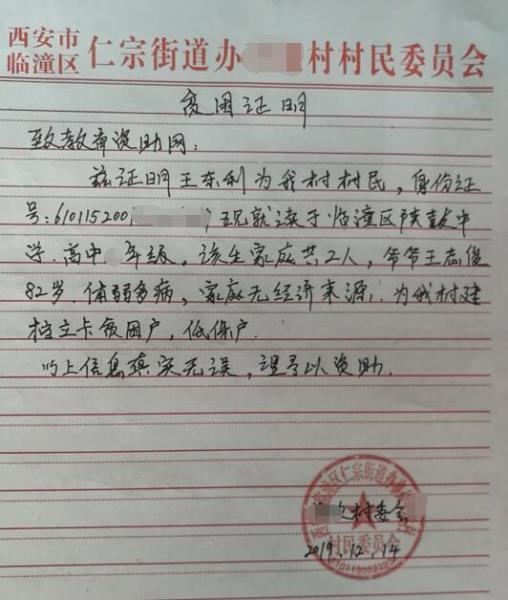 西安市
临潼区 仁宗街道办 村村民委员会
贫困证明
致教育资助网:
兹证明王东利为我村村民,身份证
号:610115200 ,现就读于临潼区陕鼓中
学.高中 年级。该生家庭共2人,爷爷王志俊
82岁.体弱多病,家庭无经济来源,为我村建
档立卡贫困户,低保户.
以上信息真实无误,望予以资助.
仁宗街道办
村民委员会
村委会
2019.12.14